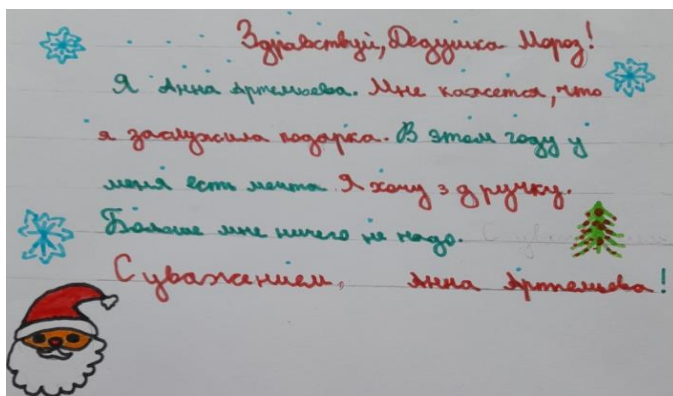 Здравствуй, Дедушка Мороз!
Я Анна Артемьева. Мне кажется, что
я заслужила подарка. В этом году у
меня есть мечта Я хочу 3 д ручку.
Больше мне ничего не надо.
С уважением, Анна Артемьева!